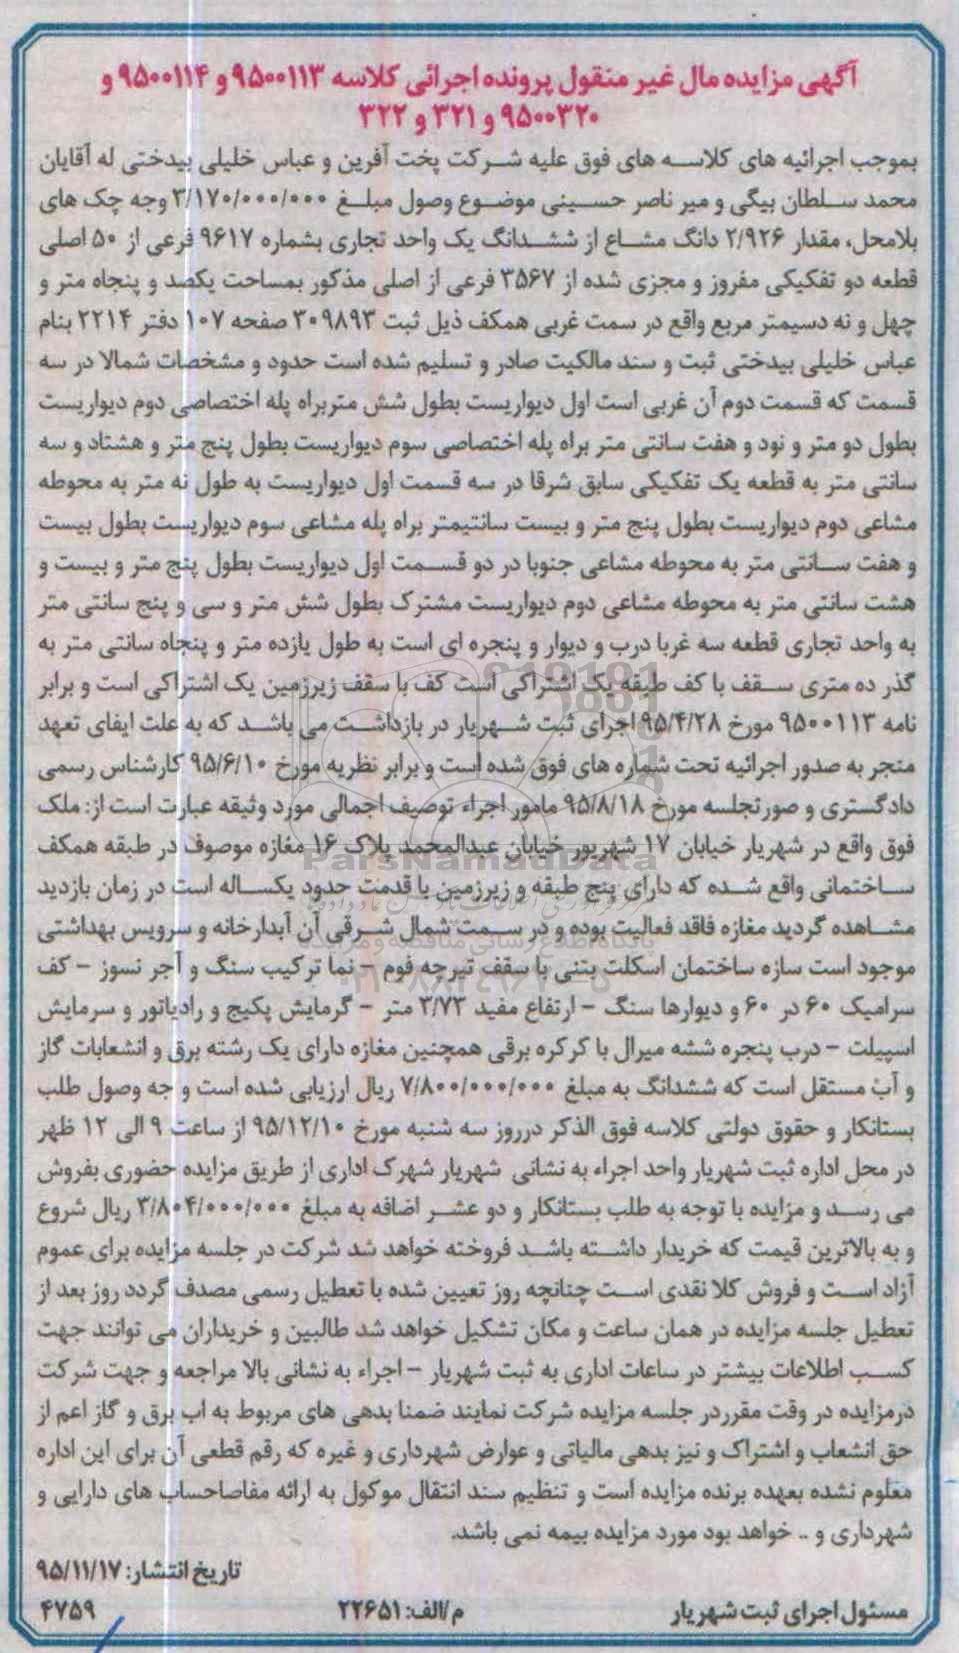 آگهی مزایده مال غیر منقول پرونده اجرائی کلاسه ۹۵۰۰۱۱۳ و ۹۵۰۰۱۱۴ و
۹۵۰۰۳۲۰ و ۳۲۱ و ۳۲۲
بموجب اجرائیه های کلاسه های فوق علیه شرکت پخت آفرین و عباس خلیلی بیدختی له آقایان
محمد سلطان بیگی و میر ناصر حسینی موضوع وصول مبلغ ۳/۱۷۰/۰۰۰/۰۰۰ وجه چک های
بلامحل، مقدار ۲/۹۲۶ دانگ مشاع از ششدانگ یک واحد تجاری بشماره ۹۶۱۷ فرعی از ۵۰ اصلی
قطعه دو تفکیکی مفروز و مجزی شده از ۳۵۶۷ فرعی از اصلی مذکور بمساحت یکصد و پنجاه متر و
چهل و نه دسیمتر مربع واقع در سمت غربی همکف ذیل ثبت ۳۰۹۸۹۳ صفحه ۱۰۷ دفتر ۲۲۱۴ بنام
عباس خلیلی بیدختی ثبت و سند مالکیت صادر و تسلیم شده است حدود و مشخصات شمالا در سه
قسمت که قسمت دوم آن غربی است اول دیواریست بطول شش متربراه پله اختصاصی دوم دیواریست
بطول دو متر و نود و هفت سانتی متر براه پله اختصاصی سوم دیواریست بطول پنج متر و هشتاد و سه
سانتی متر به قطعه یک تفکیکی سابق شرقا در سه قسمت اول دیواریست به طول نه متر به محوطه
مشاعی دوم دیواریست بطول پنج متر و بیست سانتیمتر براه پله مشاعی سوم دیواریست بطول بیست
و هفت سانتی متر به محوطه مشاعی جنوبا در دو قسمت اول دیواریست بطول پنج متر و بیست و
هشت سانتی متر به محوطه مشاعی دوم دیواریست مشترک بطول شش متر و سی و پنج سانتی متر
به واحد تجاری قطعه سه غربا درب و دیوار و پنجره ای است به طول یازده متر و پنجاه سانتی متر به
گذر ده متری سقف با کف طبقه یک اشتراکی است کف با سقف زیرزمین یک اشتراکی است و برابر
نامه ۹۵۰۰۱۱۳ مورخ ۹۵/۴/۲۸ اجرای ثبت شهریار در بازداشت می باشد که به علت ایفای تعهد
منجر به صدور اجرائیه تحت شماره های فوق شده است و برابر نظریه مورخ ۹۵/۶/۱۰ کارشناس رسمی
دادگستری و صورتجلسه مورخ ۹۵/۸/۱۸ مامور اجراء توصیف اجمالی مورد وثیقه عبارت است از: ملک
فوق واقع در شهریار خیابان ۱۷ شهریور خیابان عبدالمحمد پلاک ۱۶ مغازه موصوف در طبقه همکف
ساختمانی واقع شده که دارای پنج طبقه و زیرزمین با قدمت حدود یکساله است در زمان بازدید
مشاهده گردید مغازه فاقد فعالیت بوده و در سمت شمال شرقی آن آبدارخانه و سرویس بهداشتی
موجود است سازه ساختمان اسکلت بتنی با سقف تیرچه فوم – نما ترکیب سنگ و آجر نسوز – کف
سرامیک ۶۰ در ۶۰ و دیوارها سنگ – ارتفاع مفید ۳/۷۳ متر – گرمایش پکیج و رادیاتور و سرمایش
اسپیلت – درب پنجره ششه میرال با کرکره برقی همچنین مغازه دارای یک رشته برق و انشعابات گاز
و آب مستقل است که ششدانگ به مبلغ ۷/۸۰۰/۰۰۰/۰۰۰ ریال ارزیابی شده است و جه وصول طلب
بستانکار و حقوق دولتی کلاسه فوق الذکر درروز سه شنبه مورخ ۹۵/۱۲/۱۰ از ساعت ۹ الی ۱۲ ظهر
در محل اداره ثبت شهریار واحد اجراء به نشانی شهریار شهرک اداری از طریق مزایده حضوری بفروش
می رسد و مزایده با توجه به طلب بستانکار و دو عشر اضافه به مبلغ ۳/۸۰۴/۰۰۰/۰۰۰ ریال شروع
و به بالاترین قیمت که خریدار داشته باشد فروخته خواهد شد شرکت در جلسه مزایده برای عموم
آزاد است و فروش کلا نقدی است چنانچه روز تعیین شده با تعطیل رسمی مصدف گردد روز بعد از
تعطیل جلسه مزایده در همان ساعت و مکان تشکیل خواهد شد طالبین و خریداران می توانند جهت
کسب اطلاعات بیشتر در ساعات اداری به ثبت شهریار – اجراء به نشانی بالا مراجعه و جهت شرکت
درمزایده در وقت مقرردر جلسه مزایده شرکت نمایند ضمنا بدهی های مربوط به اب برق و گاز اعم از
حق انشعاب و اشتراک و نیز بدهی مالیاتی و عوارض شهرداری و غیره که رقم قطعی آن برای این اداره
معلوم نشده بعهده برنده مزایده است و تنظیم سند انتقال موکول به ارائه مفاصاحساب های دارایی و
شهرداری و .. خواهد بود مورد مزایده بیمه نمی باشد.
تاریخ انتشار: ۹۵/۱۱/۱۷
مسئول اجرای ثبت شهریار م/الف: ۲۲۶۵۱ ۴۷۵۹
ParsNamadData
پایگاه اطلاع رسانی مناقصه و مزایده